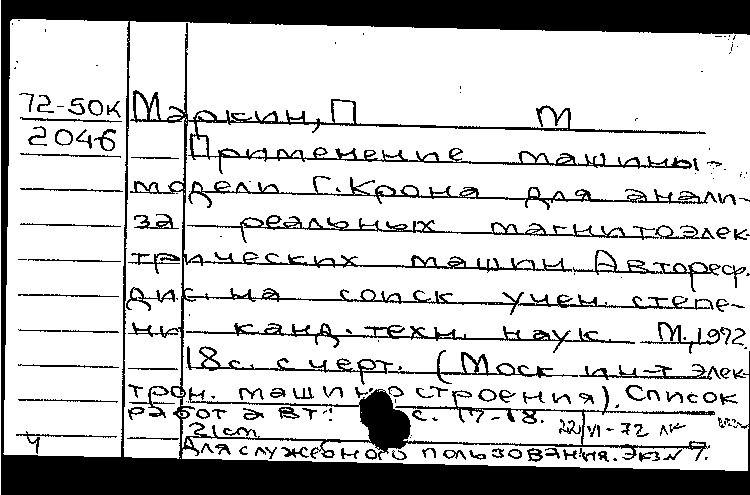 72-50к Маркин, П М
2046 Применение машины-
модели Г. Крона для анали-
за реальных магнитоэлек-
трических машин. Автореф.
дис. на соиск учен. степе-
ни канд. техн. наук. М., 1972.
18с. с черт. (Моск ин-т элек-
трон. машиностроения). Список
работ авт: с. 17-18.
21cm 22/VI-72
4 Для служебного пользования. Экз № 7.